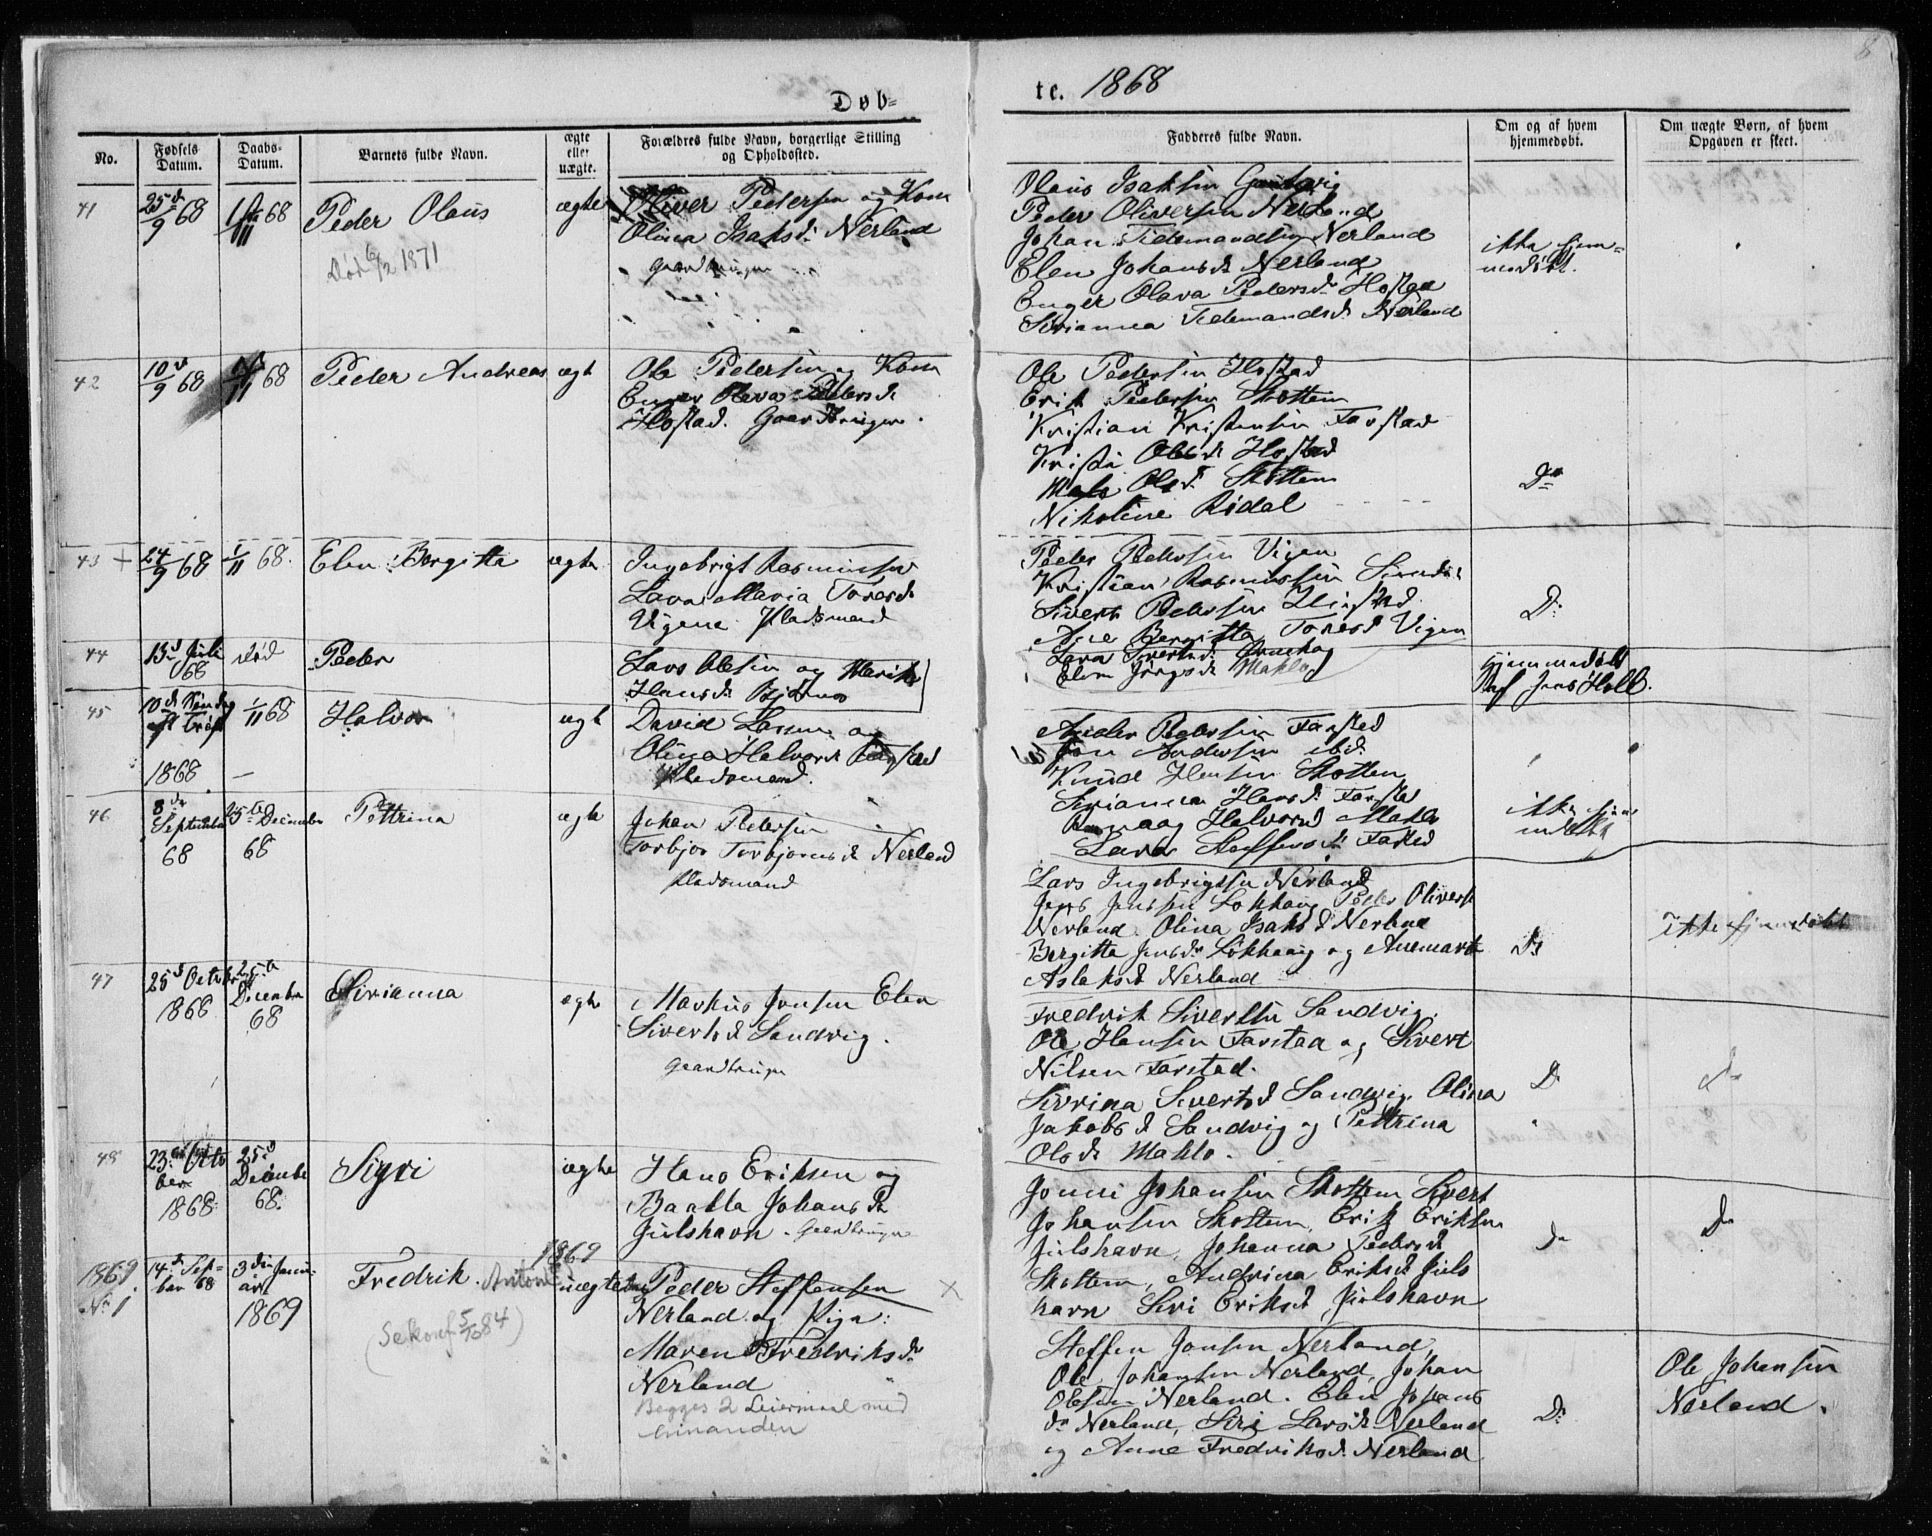 8
Døb=
te. 1868
No.
Fødsels Datum.
Daabs- Datum.
Barnets fulde Navn.
ægte eller uægte.
Forældres fulde Navn, borgerlige Stilling og Opholdssted.
Fadderes fulde Navn.
Om og af hvem hjemmedøbt.
Om uægte Børn, af hvem Opgaven er skeet.
41
25d/9 68
1/11 68
Peder Olaus
Død 6/2 1871
ægte
Oliver Pedersen og Kone
Olina Isaksd. Nerland
Gaardbruger
Olaus Isaksen
Peder Oliversen Nerland
Johan Tidemandsen Nerland
Elen Johansd. Nerland
Enger Olava Pedersd. Hostad
Sirianna Tidemandsd. Nerland
ikke hjem=
medøbt.
42
10d/9 68
1/11 68
Peder Andreas
ægte
Ole Pedersen og Kone
Enger Olava Pedersd.
Hostad. Gaardbruger.
Ole Pedersen Hostad
Erik Pedersen Skottem
Kristian Kristensen Farstad
Olesd. Hostad
Olesd. Skottem
Nikoline Rødal
Do
43 +
24/9 68
1/11 68.
Elen Bergitta
ægte
Ingebrigt Rasmussen
Maria Toresd.
Vigen. Pladsmand
Peder Pedersen Vigen
Kristian Rasmussen
Sivert Pedersen
Ane Bergitta Toresd. Vigen
Lava Sivertsd.
Elen Jørgsd. Mahlo
D:
44
13d Juli
68
død
Peder
Lars Olesen og Marit
Hansd.
Hjemmedøbt
af Jens Holl.
45
10d Søndag
eft. Tref.
1868
1/11 68
Halvor
ægte
David Larsen og
Olina Halvorsd. Farstad
Pladsmand.
Anders Pedersen Farstad
Jon Andersen ibd.
Knud Hansen Skotten
Sirianna Hansd. Farstad
Halvorsd. Mahlo
Lava Steffensd. Farstad
46
8de
September
68
25te December
68
Pettrina
ægte
Johan Pedersen
Torbjør Torbjørnsd. Nerland
Pladsmand
ikke hjem
Lars Ingebrigtsen Nerland
Jens Jensen Løkhaug Peder Olivers.
Nerland. Olina Isaksd. Nerland
Bergitta Jensd. Løkhaug og Anemart
Aslaksd. Nerland
D:
ikke hjemmedøbt
47
25d October
1868
25te
December
68
Sirianna
ægte
Markus Jonsen Elen
Sivertsd. Sandvig.
Gaardbruger
Fredrik Sivertsen Sandvig.
Ole Hansen Farstad og Sivert
Nilsen Farstad.
Sivrina Sivertsd. Sandvig. Olina
Jakobsd. Sandvig og Pettrina
Olsd. Mahlo.
D.
d.
48
23de Octo
ber
1868
25d
December
68.
Sigri
ægte
Hans Eriksen og
Johansd.
Julshavn. Gaardbruger
Jonni Johansen Skottem Sivert
Johansen Skottem, Erik Eriksen
Julshavn, Johanna Pedersd.
Skottem, Andrina Eriksd. Juls
havn Siri Eriksd. Julshavn
Do
Do
1869
1869.
No 1
14d Sep=
ber 68
3die Janu=
ar
1869
Fredrik. Anton
(Se Konf 5/10 84)
uægte
Peder Steffensen
Nerland og Pige:
Maren Fredriksd.
Nerland
Begges 2 Leiermaal med
hinanden
Steffen Jonsen Nerland,
Ole Johansen Nerland, Johan
Olesen Nerland. Elen Johans
d. Nerland, Siri Larsd. Nerland
og Anne Fredriksd. Nerland
D:
Ole Johansen
Nerland.